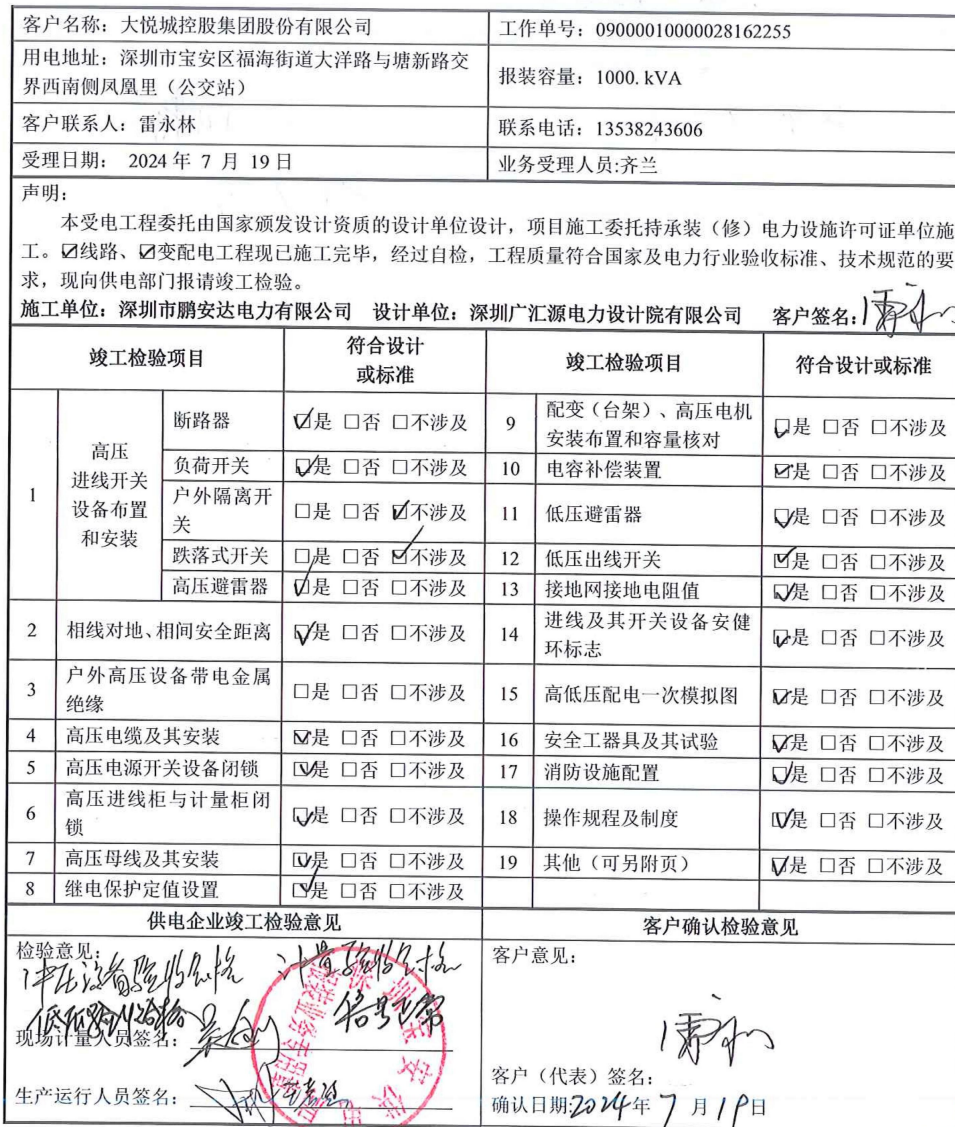 客户名称：大悦城控股集团股份有限公司
工作单号：09000010000028162255
用电地址：深圳市宝安区福海街道大洋路与塘新路交
界西南侧凤凰里（公交站）
报装容量：1000. kVA
客户联系人：雷永林
联系电话：13538243606
受理日期： 2024 年 7 月 19 日
业务受理人员:齐兰
声明：
本受电工程委托由国家颁发设计资质的设计单位设计，项目施工委托持承装（修）电力设施许可证单位施
工。☑线路、☑变配电工程现已施工完毕，经过自检，工程质量符合国家及电力行业验收标准、技术规范的要
求，现向供电部门报请竣工检验。
施工单位：深圳市鹏安达电力有限公司 设计单位：深圳广汇源电力设计院有限公司 客户签名：
竣工检验项目 符合设计或标准 竣工检验项目 符合设计或标准
1 高压进线开关设备布置和安装
断路器 ☑是 □否 □不涉及
9 配变（台架）、高压电机安装布置和容量核对 ☑是 □否 □不涉及
负荷开关 ☑是 □否 □不涉及
10 电容补偿装置 ☑是 □否 □不涉及
户外隔离开关 □是 □否 ☑不涉及
11 低压避雷器 ☑是 □否 □不涉及
跌落式开关 □是 □否 ☑不涉及
12 低压出线开关 ☑是 □否 □不涉及
高压避雷器 ☑是 □否 □不涉及
13 接地网接地电阻值 ☑是 □否 □不涉及
2 相线对地、相间安全距离 ☑是 □否 □不涉及
14 进线及其开关设备安健环标志 ☑是 □否 □不涉及
3 户外高压设备带电金属绝缘 □是 □否 □不涉及
15 高低压配电一次模拟图 ☑是 □否 □不涉及
4 高压电缆及其安装 ☑是 □否 □不涉及
16 安全工器具及其试验 ☑是 □否 □不涉及
5 高压电源开关设备闭锁 ☑是 □否 □不涉及
17 消防设施配置 ☑是 □否 □不涉及
6 高压进线柜与计量柜闭锁 ☑是 □否 □不涉及
18 操作规程及制度 ☑是 □否 □不涉及
7 高压母线及其安装 ☑是 □否 □不涉及
19 其他（可另附页） ☑是 □否 □不涉及
8 继电保护定值设置 ☑是 □否 □不涉及
供电企业竣工检验意见 客户确认检验意见
检验意见：
计量验收合格
信号正常
现场计量人员签名：
生产运行人员签名：
客户意见：
客户（代表）签名：
确认日期:2024年 7 月 19日